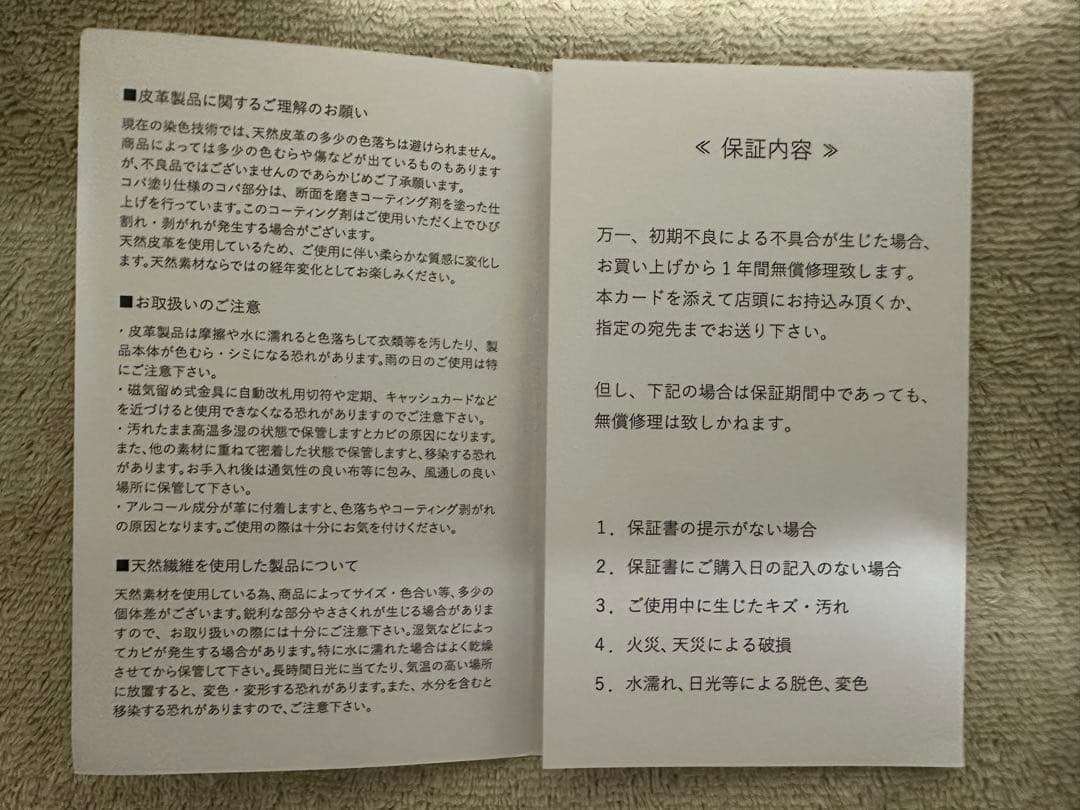 ■皮革製品に関するご理解のお願い
現在の染色技術では、天然皮革の多少の色落ちは避けられません。
商品によっては多少の色むらや傷などが出ているものもあります
が、不良品ではございませんのであらかじめご了承願います。
コバ塗り仕様のコバ部分は、断面を磨きコーティング剤を塗った仕
上げを行っています。このコーティング剤はご使用いただく上でひび
割れ・剥がれが発生する場合がございます。
天然皮革を使用しているため、ご使用に伴い柔らかな質感に変化し
ます。天然素材ならではの経年変化としてお楽しみください。
■お取扱いのご注意
・皮革製品は摩擦や水に濡れると色落ちして衣類等を汚したり、製
品本体が色むら・シミになる恐れがあります。雨の日のご使用は特
にご注意下さい。
・磁気留め式金具に自動改札用切符や定期、キャッシュカードなど
を近づけると使用できなくなる恐れがありますのでご注意下さい。
・汚れたまま高温多湿の状態で保管しますとカビの原因になります。
また、他の素材に重ねて密着した状態で保管しますと、移染する恐れ
があります。お手入れ後は通気性の良い布等に包み、風通しの良い
場所に保管して下さい。
・アルコール成分が革に付着しますと、色落ちやコーティング剥がれ
の原因となります。ご使用の際は十分にお気を付けください。
■天然繊維を使用した製品について
天然素材を使用している為、商品によってサイズ・色合い等、多少の
個体差がございます。鋭利な部分やささくれが生じる場合がありま
すので、お取り扱いの際には十分にご注意下さい。湿気などによっ
てカビが発生する場合があります。特に水に濡れた場合はよく乾燥
させてから保管して下さい。長時間日光に当てたり、気温の高い場所
に放置すると、変色・変形する恐れがあります。また、水分を含むと
移染する恐れがありますので、ご注意下さい。
≪ 保証内容 ≫
万一、初期不良による不具合が生じた場合、
お買い上げから1年間無償修理致します。
本カードを添えて店頭にお持込み頂くか、
指定の宛先までお送り下さい。
但し、下記の場合は保証期間中であっても、
無償修理は致しかねます。
1. 保証書の提示がない場合
2. 保証書にご購入日の記入のない場合
3. ご使用中に生じたキズ・汚れ
4. 火災、天災による破損
5. 水濡れ、日光等による脱色、変色